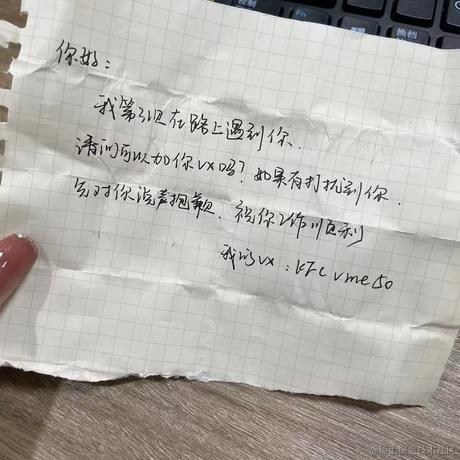 你好：
我第3次在路上遇到你.
请问可以加你vx吗？如果有打扰到你.
先对你说声抱歉. 祝你工作顺利
我的vx：KFC vme50
控制
Fn
换档